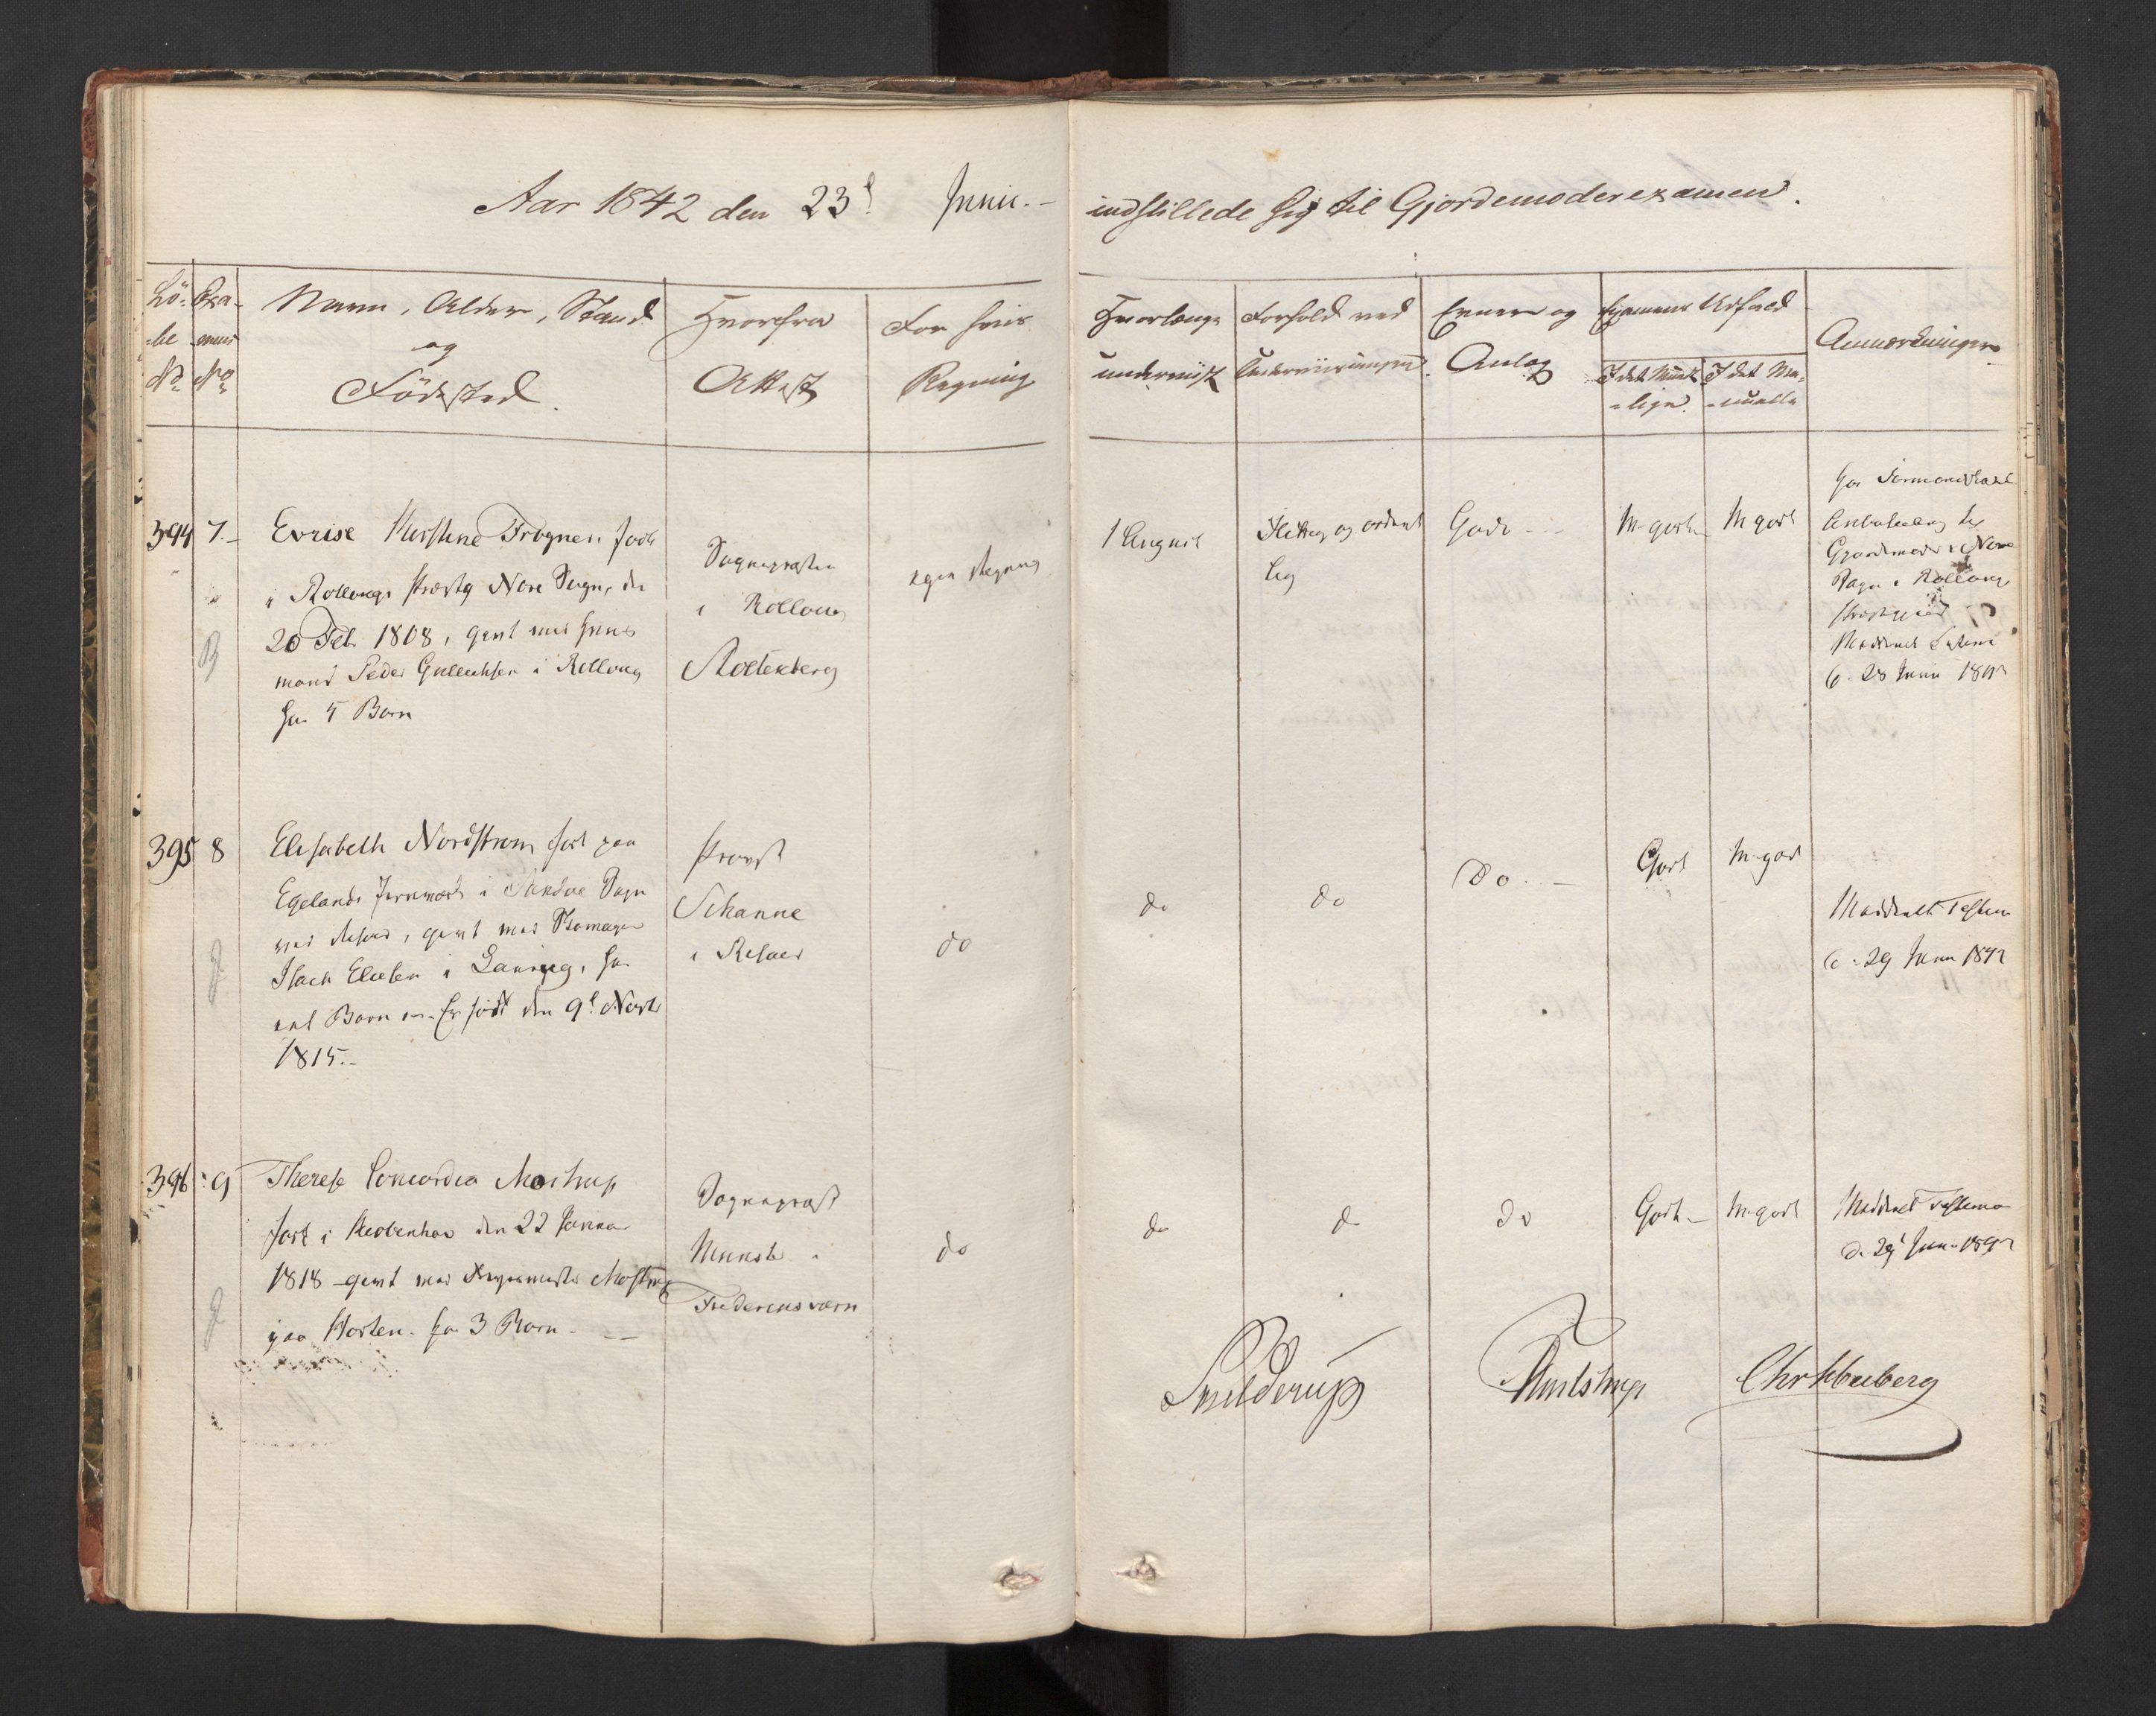 Aar 1842 den 23d Junii.-
indstillede sig til Gjordemoderexamen.
Lö-
-be
No
Exa-
mens
No
Navn, Alder, Stand
og
Födested.
Hvorfra
Attest
For hvis
Regning
Hvorlænge
underviist
Forhold ved
Underviisningen.
Evner og
Anlæg
Examens Udfald
I det Mündt-
-lige.
I det Ma-
-nuelle
Anmærkninger
394 7.-
Kirstine Frogner, født
i Rollougs Præstg Nore Sogn, den
20 Feb. 1808, givt med Huus
mand Peder Gulliksen i Rolloug
har 5 Børn
B
Sognepræsten
i Rolloug
egen Regning
1 August
Flittig og ordent
lig
Gode - -
M-godt
M godt
har Formandskabets
Anbefaling til
Gjordemoder i Nore
Sogn i Rolloug
Præstegield
Meddeelt Testm
d. 28 Juni 1842
395 8
Elisabeth Nordstrøm født paa
Egelands Jernværk i Søndle Sogn
ved Risøer, givt med Skomager
Isach Eliesen i Laurvig, har
eet Barn - Er født den 9d Novbr
1815.-
Provst
Schanne
i Risøer
do
do
do
Do. -
Godt
M-godt
Meddeelt Testim
d. 29 Juni 1842
396 9
Therese Concordia Mostrup
født i Kiøbenhav den 22 Januar
1818 - givt med Mostrup
paa Horten. har 3 Børn - -
Sognepræst
Munster i
Fredriksværn
do
do
do
do
Godt -
M-godt
Meddeelt Testimo
d. 29 Juni 1842
Skielderup
Thulstrup
Chr Heiberg